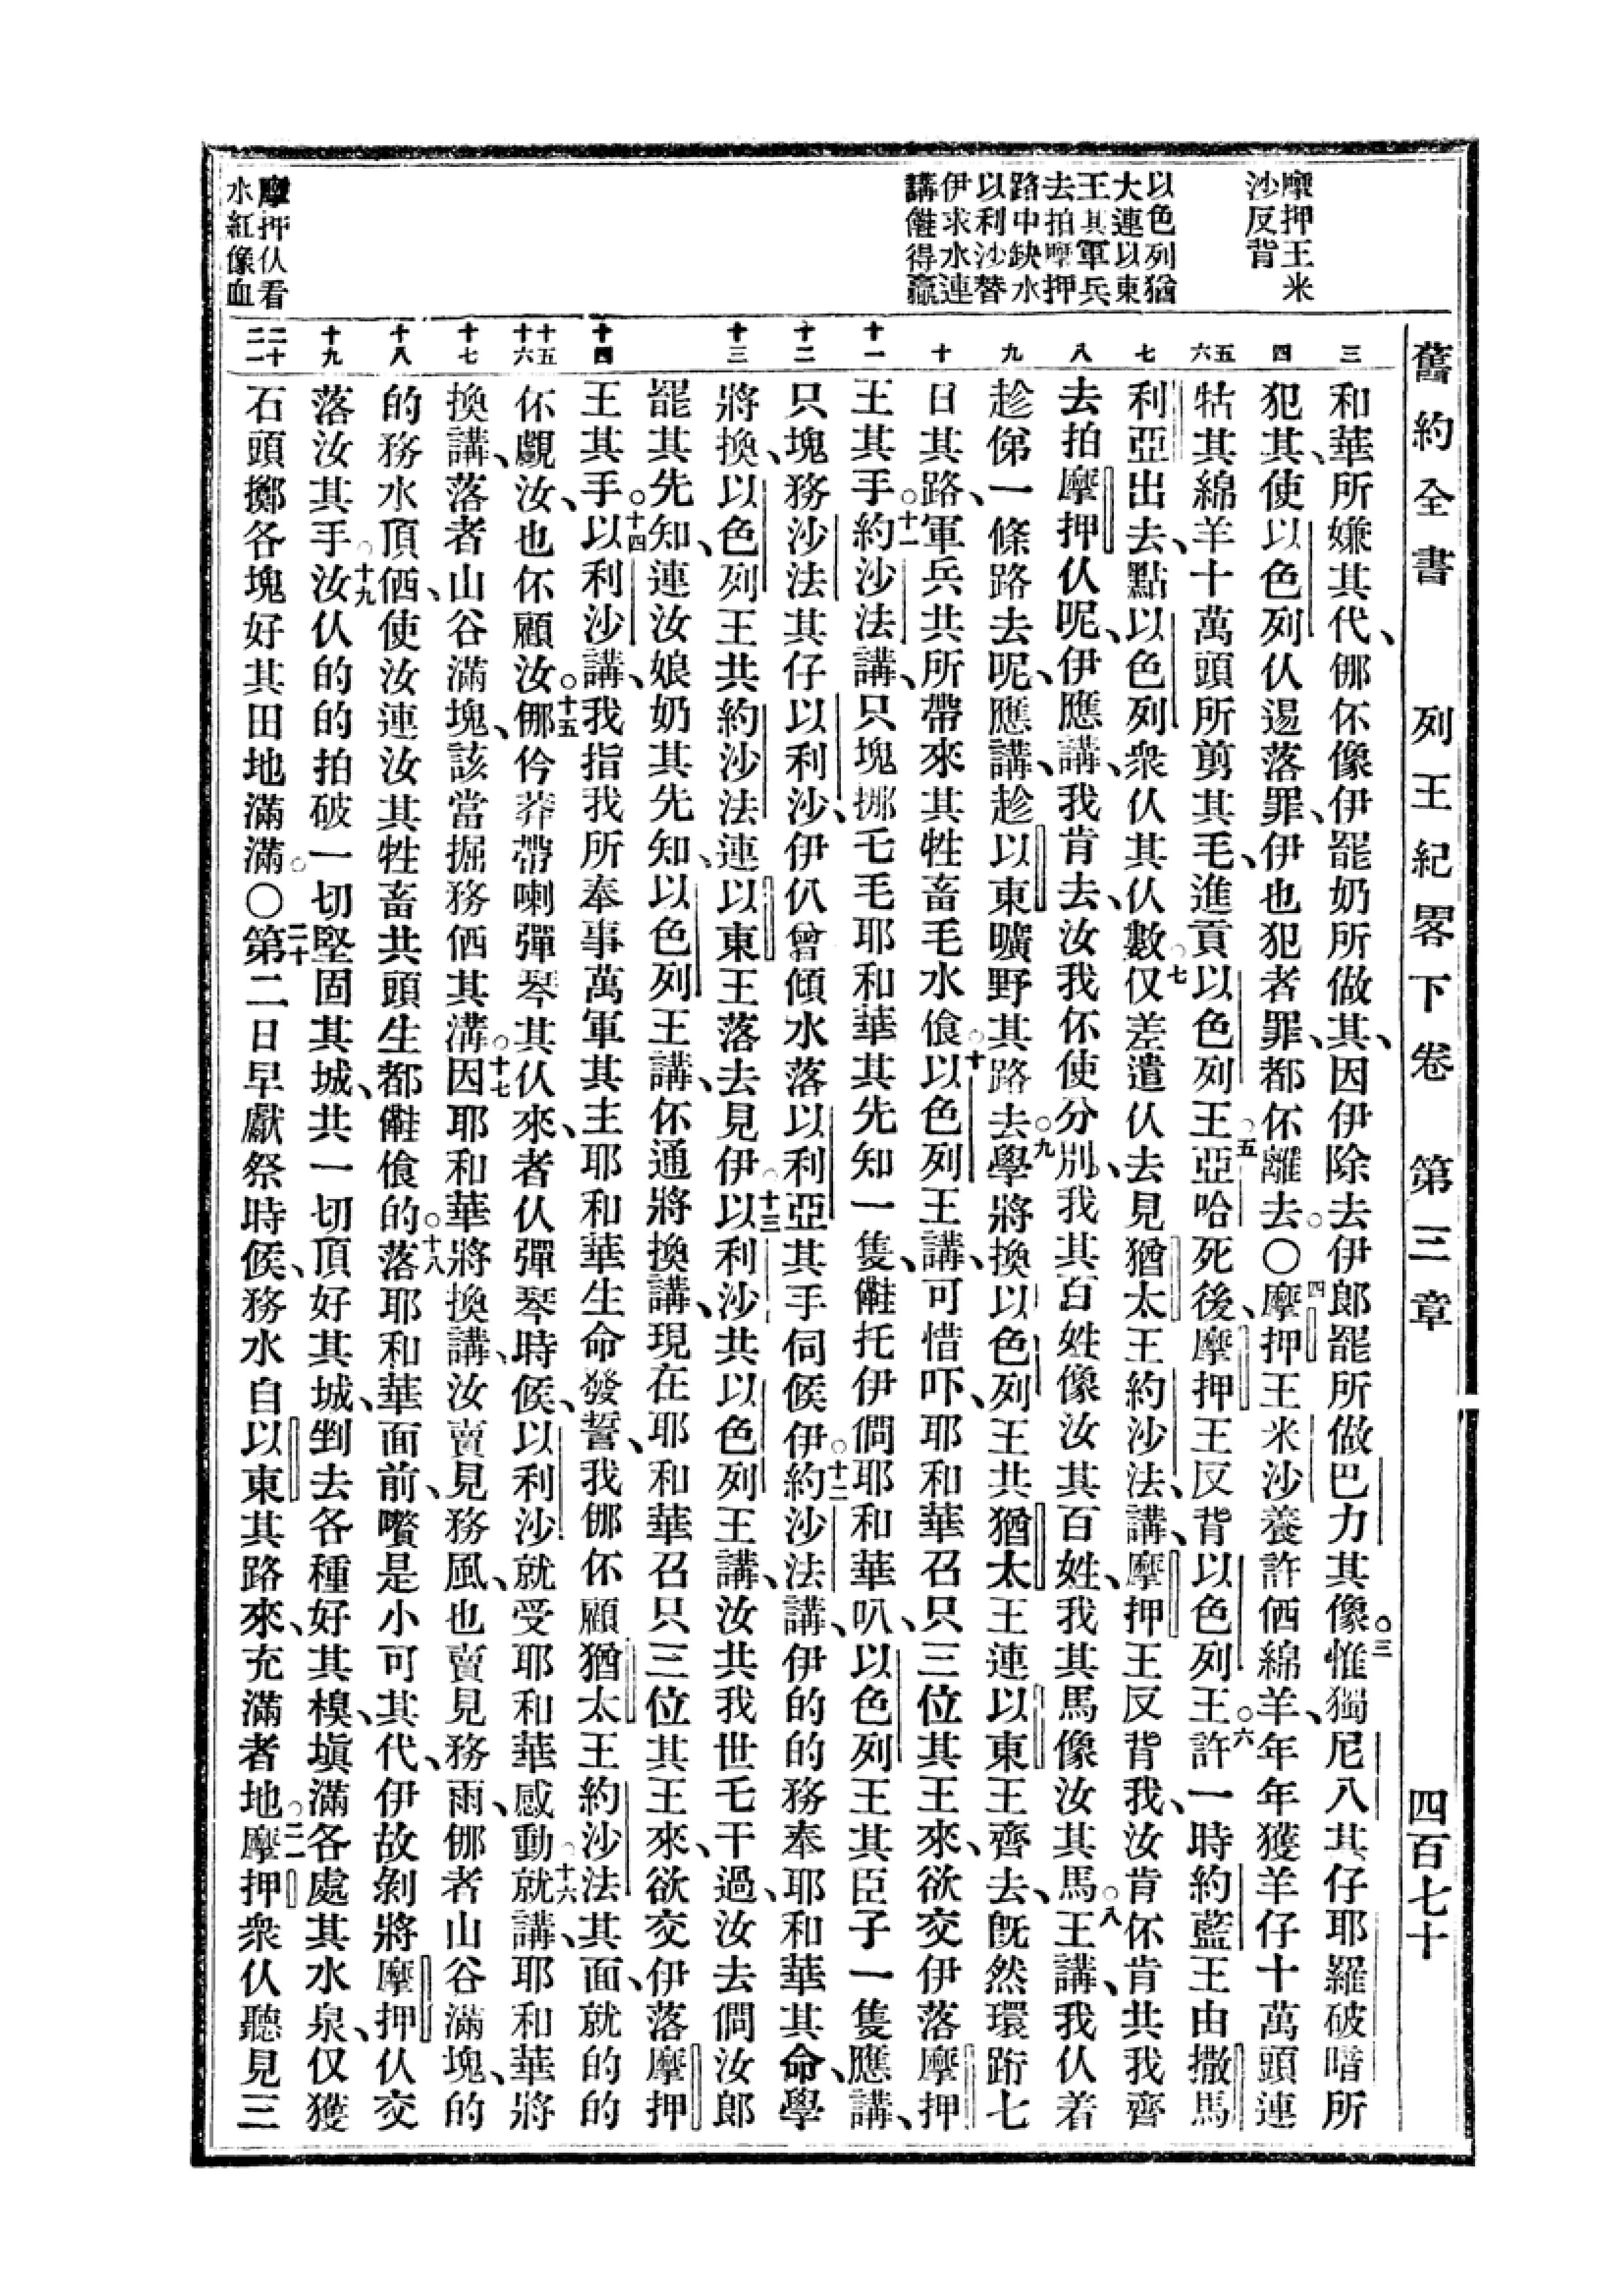 舊約全書 列王紀畧下卷 第三章 四百七十
摩押王米
沙反背
以色列猶
大連以東
王其軍兵
去拍摩押
路中缺水
以利沙替
伊求水連
講得贏
摩押仈看
水紅像血
三 四 五 六 七 八 九 十 十一 十二 十三 十四 十五 十六 十七 十八 十九 二十 二一
和華所嫌其代、倻伓像伊罷奶所做其、因伊除去伊郎罷所做巴力其像。三惟獨尼八其仔耶羅破暗所
犯其、使以色列仈逿落罪、伊也犯者罪、都伓離去。〇四摩押王米沙養許㑚綿羊、年年獲羊仔十萬頭連
牯其綿羊十萬頭所剪其毛、進貢以色列王。五亞哈死後、摩押王反背以色列王。六許一時約藍王由撒馬
利亞出去、點以色列衆仈其仈數。七仅差遣仈去見猶太王約沙法、講、摩押王反背我、汝肯伓肯共我齊
去拍摩押仈呢、伊應講、我肯去、汝我伓使分別、我其百姓像汝其百姓、我其馬像汝其馬。八王講、我仈着
趁俤一條路去呢、應講、趁以東曠野其路去。九學將換以色列王共猶太王連以東王齊去、旣然環跘七
日其路、軍兵共所帶來其牲畜毛水飱。十以色列王講、可惜吓、耶和華召只三位其王來、欲交伊落摩押
王其手。十一約沙法講、只塊挪乇毛耶和華其先知一隻、托伊僩耶和華叭、以色列王其臣子一隻應講、
只塊務沙法其仔以利沙、伊仈曾傾水落以利亞其手伺候伊。十二約沙法講、伊的的務奉耶和華其命、學
將換、以色列王共約沙法連以東王落去見伊。十三以利沙共以色列王講、汝共我世乇干過、汝去僩汝郎
罷其先知、連汝娘奶其先知、以色列王講、伓通將換講、現在耶和華召只三位其王來、欲交伊落摩押
王其手。十四以利沙講、我指我所奉事萬軍其主耶和華生命發誓、我倻伓顧猶太王約沙法其面、就的的
伓覷汝、也伓顧汝。十五倻伶莽帶喇彈琴其仈來、者仈彈琴時候、以利沙就受耶和華感動。十六就講、耶和華將
換講、落者山谷滿塊、該當掘務㑚其溝。十七因耶和華將換講、汝賣見務風、也賣見務雨、倻者山谷滿塊、的
的務水頂㑚、使汝連汝其牲畜共頭生都飱的。十八落耶和華面前、嚽是小可其代、伊故剝將摩押仈交
落汝其手。十九汝仈的的拍破一切堅固其城、共一切頂好其城、剉去各種好其樹、塡滿各處其水泉、仅獲
石頭擲各塊好其田地滿滿。〇二十第二日早獻祭時候、務水自以東其路來、充滿者地。二一摩押衆仈聽見三